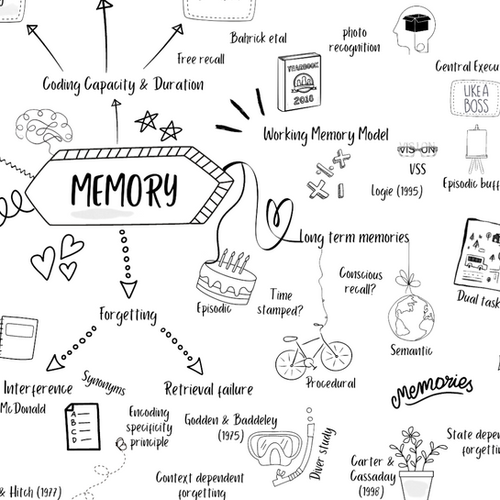 Bahrick etal
photo
recognition
Free recall
Central Execu
Coding Capacity & Duration
YEARBOOK
2016
LIKE A
BOSS
Working Memory Model
VISION
VSS
Logie (1995)
Episodic buff
MEMORY
Long term memories
Conscious
recall?
Time
stamped?
Episodic
Dual task
Forgetting
Semantic
Procedural
Interference
McDonald
Synonyms
Retrieval failure
Memories
A
B
C
D
Encoding
specificity
principle
Godden & Baddeley
(1975)
Diver study
State depen
forgettin
Carter &
Cassaday
(1998)
Context dependent
forgetting
& Hitch (1977)